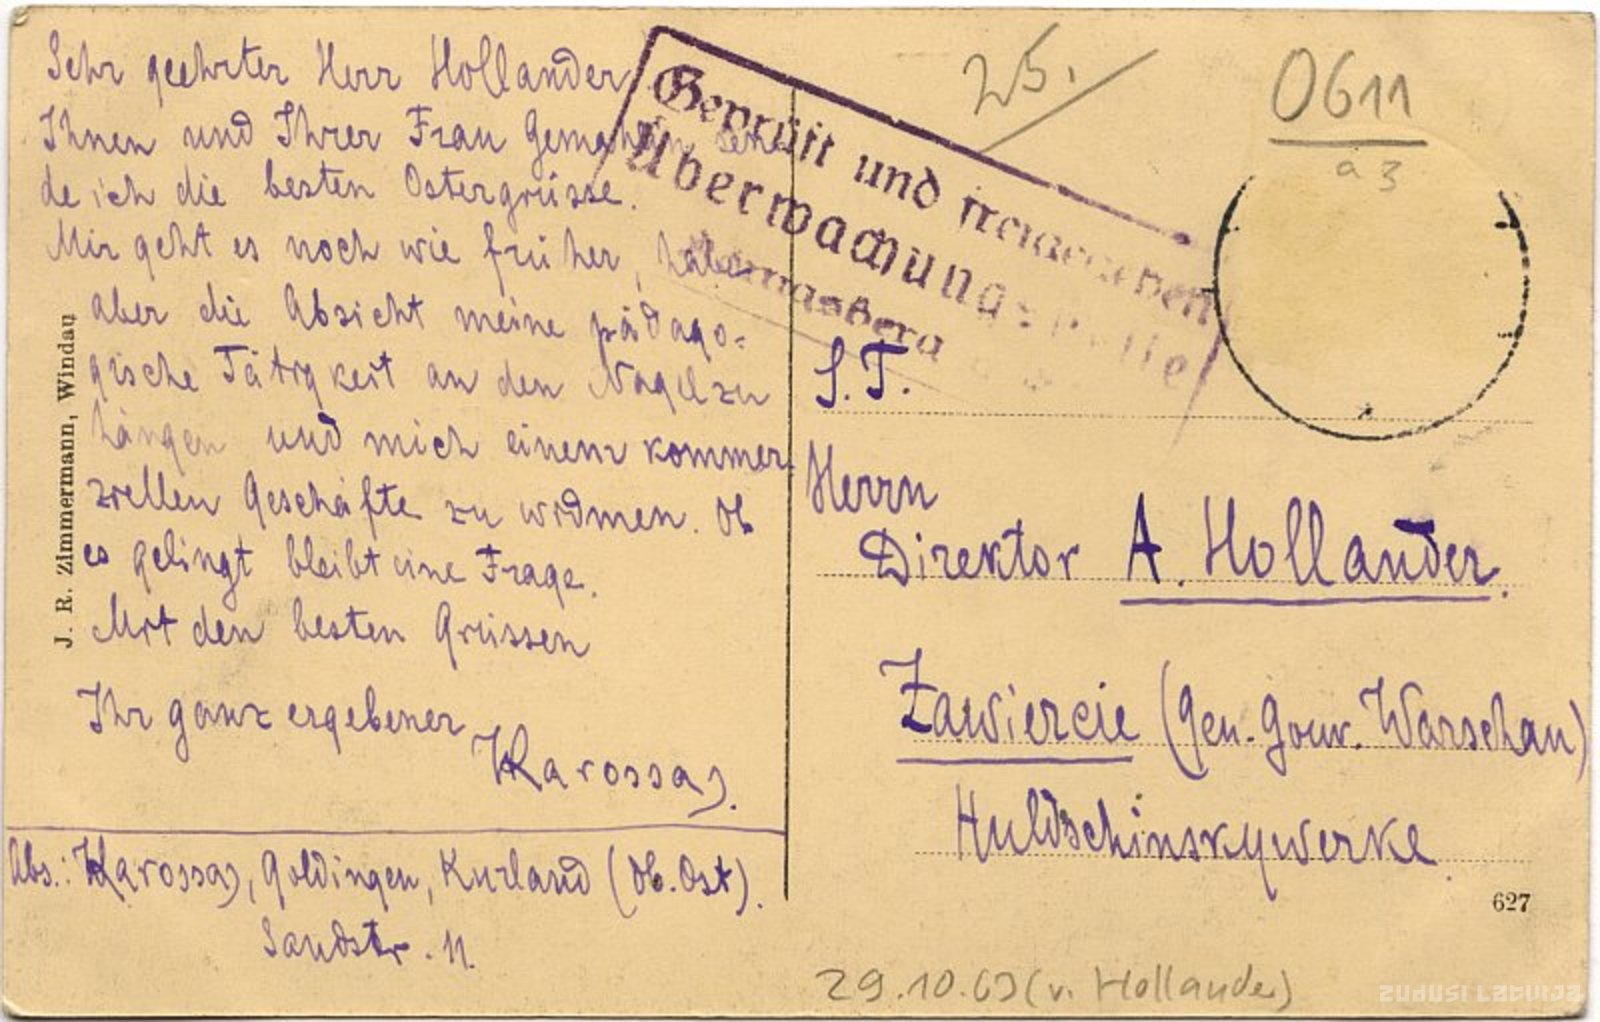 Sehr geehrter Herr Hollander
Ihnen und Ihrer Frau Gemahlin sen
de ich die besten Ostergrüsse.
Mir geht es noch wie früher, habe
aber die Absicht meine pädago-
gische Tätigkeit an den Nagel zu
hängen und mich einem kommer
ziellen Geschäfte zu widmen. Ob
es gelingt bleibt eine Frage.
Mit den besten Grüssen
Ihr ganz ergebener
Karossas.
Abs.: Karossas, Goldingen, Kurland (Ob. Ost).
Sandstr. 11.
J. R. Zimmermann, Windau
Geprüft und freizugeben
Überwachungsstelle
25.
0611
a 3
S. T.
Herrn
Direktor A. Hollander.
Zawiercie (Gen. Gouv. Warschau)
Huldschinskywerke
627
29.10.63 (v. Hollander)
ZUDUSI LATVIJA